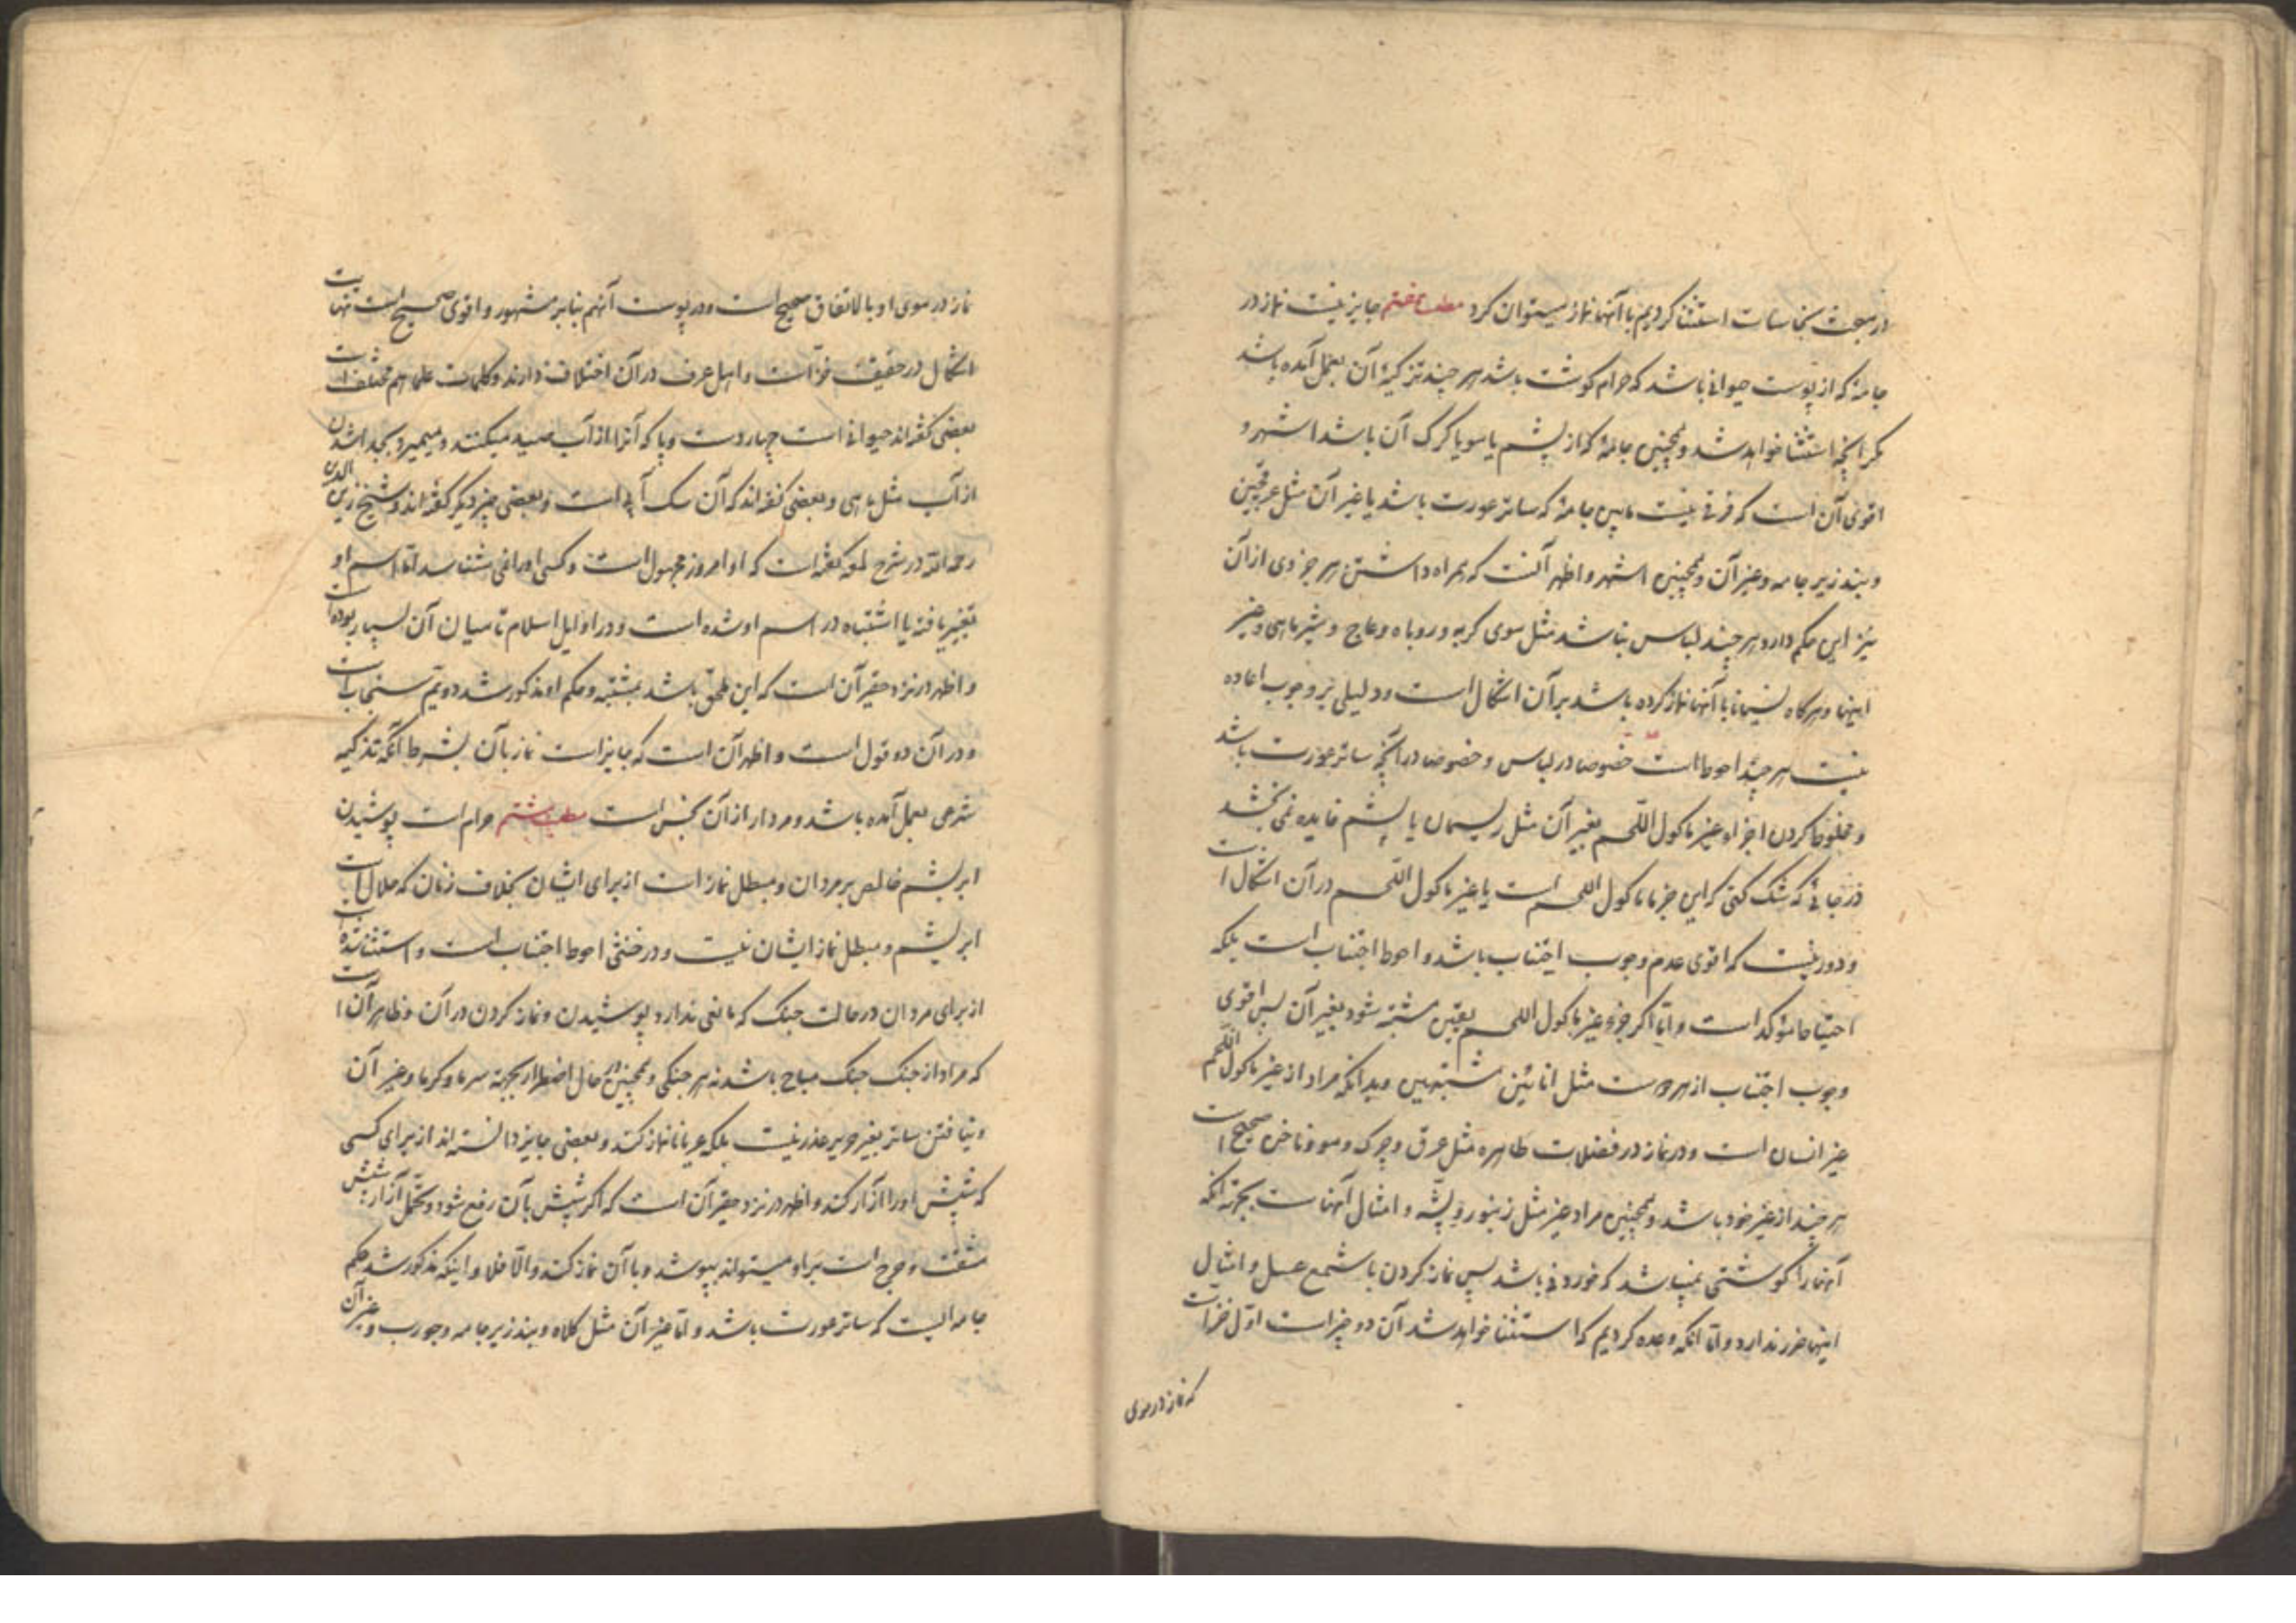 در مبحث نجاسات استثنا کردیم با آنها نماز میتوان کرد مطلب هفتم جایز نیست نماز در
جامهٔ که از پوست حیوانی باشد که حرام گوشت باشد هر چند تزکیهٔ آن بعمل آمده باشد
مگر آنچه استثنا خواهد شد و همچنین جامهٔ که از پشم یا مو یا کرک آن باشد اشهر و
اقوی آن است که فرقی نیست مابین جامهٔ که ساتر عورت باشد یا غیر آن مثل عرقچین
و بند زیر جامه و غیر آن و همچنین اشهر و اظهر آنست که همراه داشتن هر جزوی از آن
نیز این حکم دارد هر چند لباس نباشد مثل موی گربه و روباه و عاج و شیر ماهی و غیر
اینها و هرگاه نسیانا با آنها نماز کرده باشد بر آن اشکال است و دلیلی بر وجوب اعاده
نیست هر چند احوط است خصوصا در لباس و خصوصا در آنچه ساتر عورت باشد
و مخلوط کردن اجزاء غیر ماکول اللحم بغیر آن مثل ریسمان یا پشم فایده نمی بخشد
در جائی که شک کنی که این جزء ماکول اللحم است یا غیر ماکول اللحم در آن اشکال است
و دور نیست که اقوی عدم وجوب اجتناب باشد و احوط اجتناب است بلکه
احتیاط مؤکد است و اما اگر جزو غیر ماکول اللحم بیقین مشتبه شود بغیر آن پس اقوی
وجوب اجتناب از هر دو است مثل انائین مشتبهین و بدانکه مراد از غیر ماکول اللحم
غیر انسان است و در نماز در فضلات طاهره مثل عرق و چرک و مو و ناخن صحیح است
هر چند از غیر خود باشد و همچنین مراد غیر مثل زنبور و پشه و امثال آنهاست بجهة آنکه
آنها را گوشتی نمیباشد که خوردنی باشد پس نماز کردن با شمع عسل و امثال
اینها ضرر ندارد و اما آنکه وعده کردیم که استثنا خواهد شد آن دو چیز است اول خز است
که نماز در موی
نماز در موی او بالاتفاق صحیح است و در پوست آنهم بنابر مشهور و اقوی صحیح است نهایت
اشکال در حقیقت خز است و اهل عرف در آن اختلاف دارند و کلمات علما هم مختلف است
بعضی گفته اند حیوانی است چهار دست و پا که آنرا از آب صید میکنند و میمیرد بجدا شدن
از آب مثل ماهی و بعضی گفته اند که آن سگ آبی است و بعضی چیز دیگر گفته اند و شیخ زین الدین
رحمه الله در شرح لمعه گفته است که او امروز مجهول است و کسی او را نمی شناسد آیا اسم او
تغییر یافته یا اشتباه در اسم او شده است و در اوایل اسلام تا میان آن بسیار بوده است
و اظهر در نزد حقیر آن است که این ملحق باشد بمشتبه و حکم او مذکور شد دویم سنجاب است
و در آن دو قول است و اظهر آن است که جایز است نماز بآن بشرط آنکه تذکیه
شرعی بعمل آمده باشد و مردار از آن نجس است مطلب هشتم حرام است پوشیدن
ابریشم خالص بر مردان و مبطل نماز است از برای ایشان بخلاف زنان که حلال است
ابریشم و مبطل نماز ایشان نیست و در خنثی احوط اجتناب است و استثنا شده است
از برای مردان در حالت جنگ که مانعی ندارد پوشیدن و نماز کردن در آن و ظاهر آن است
که مراد از جنگ جنگ مباح باشد نه هر جنگی و همچنین در حال اضطرار بجهة سرما و گرما و غیر آن
و نیافتن ساتر بغیر حریر عذر نیست بلکه عریانا نماز کند و بعضی جایز دانسته اند از برای کسی
که شپش او را آزار کند و اظهر در نزد حقیر آن است که اگر شپش بآن رفع شود و تحمل آزار شپش
مشقت و حرج است بر او میتواند بپوشد و با آن نماز کند و الا فلا و اینکه مذکور شد حکم
جامه ایست که ساتر عورت باشد و اما غیر آن مثل کلاه و بند زیر جامه و جورب و غیر آن